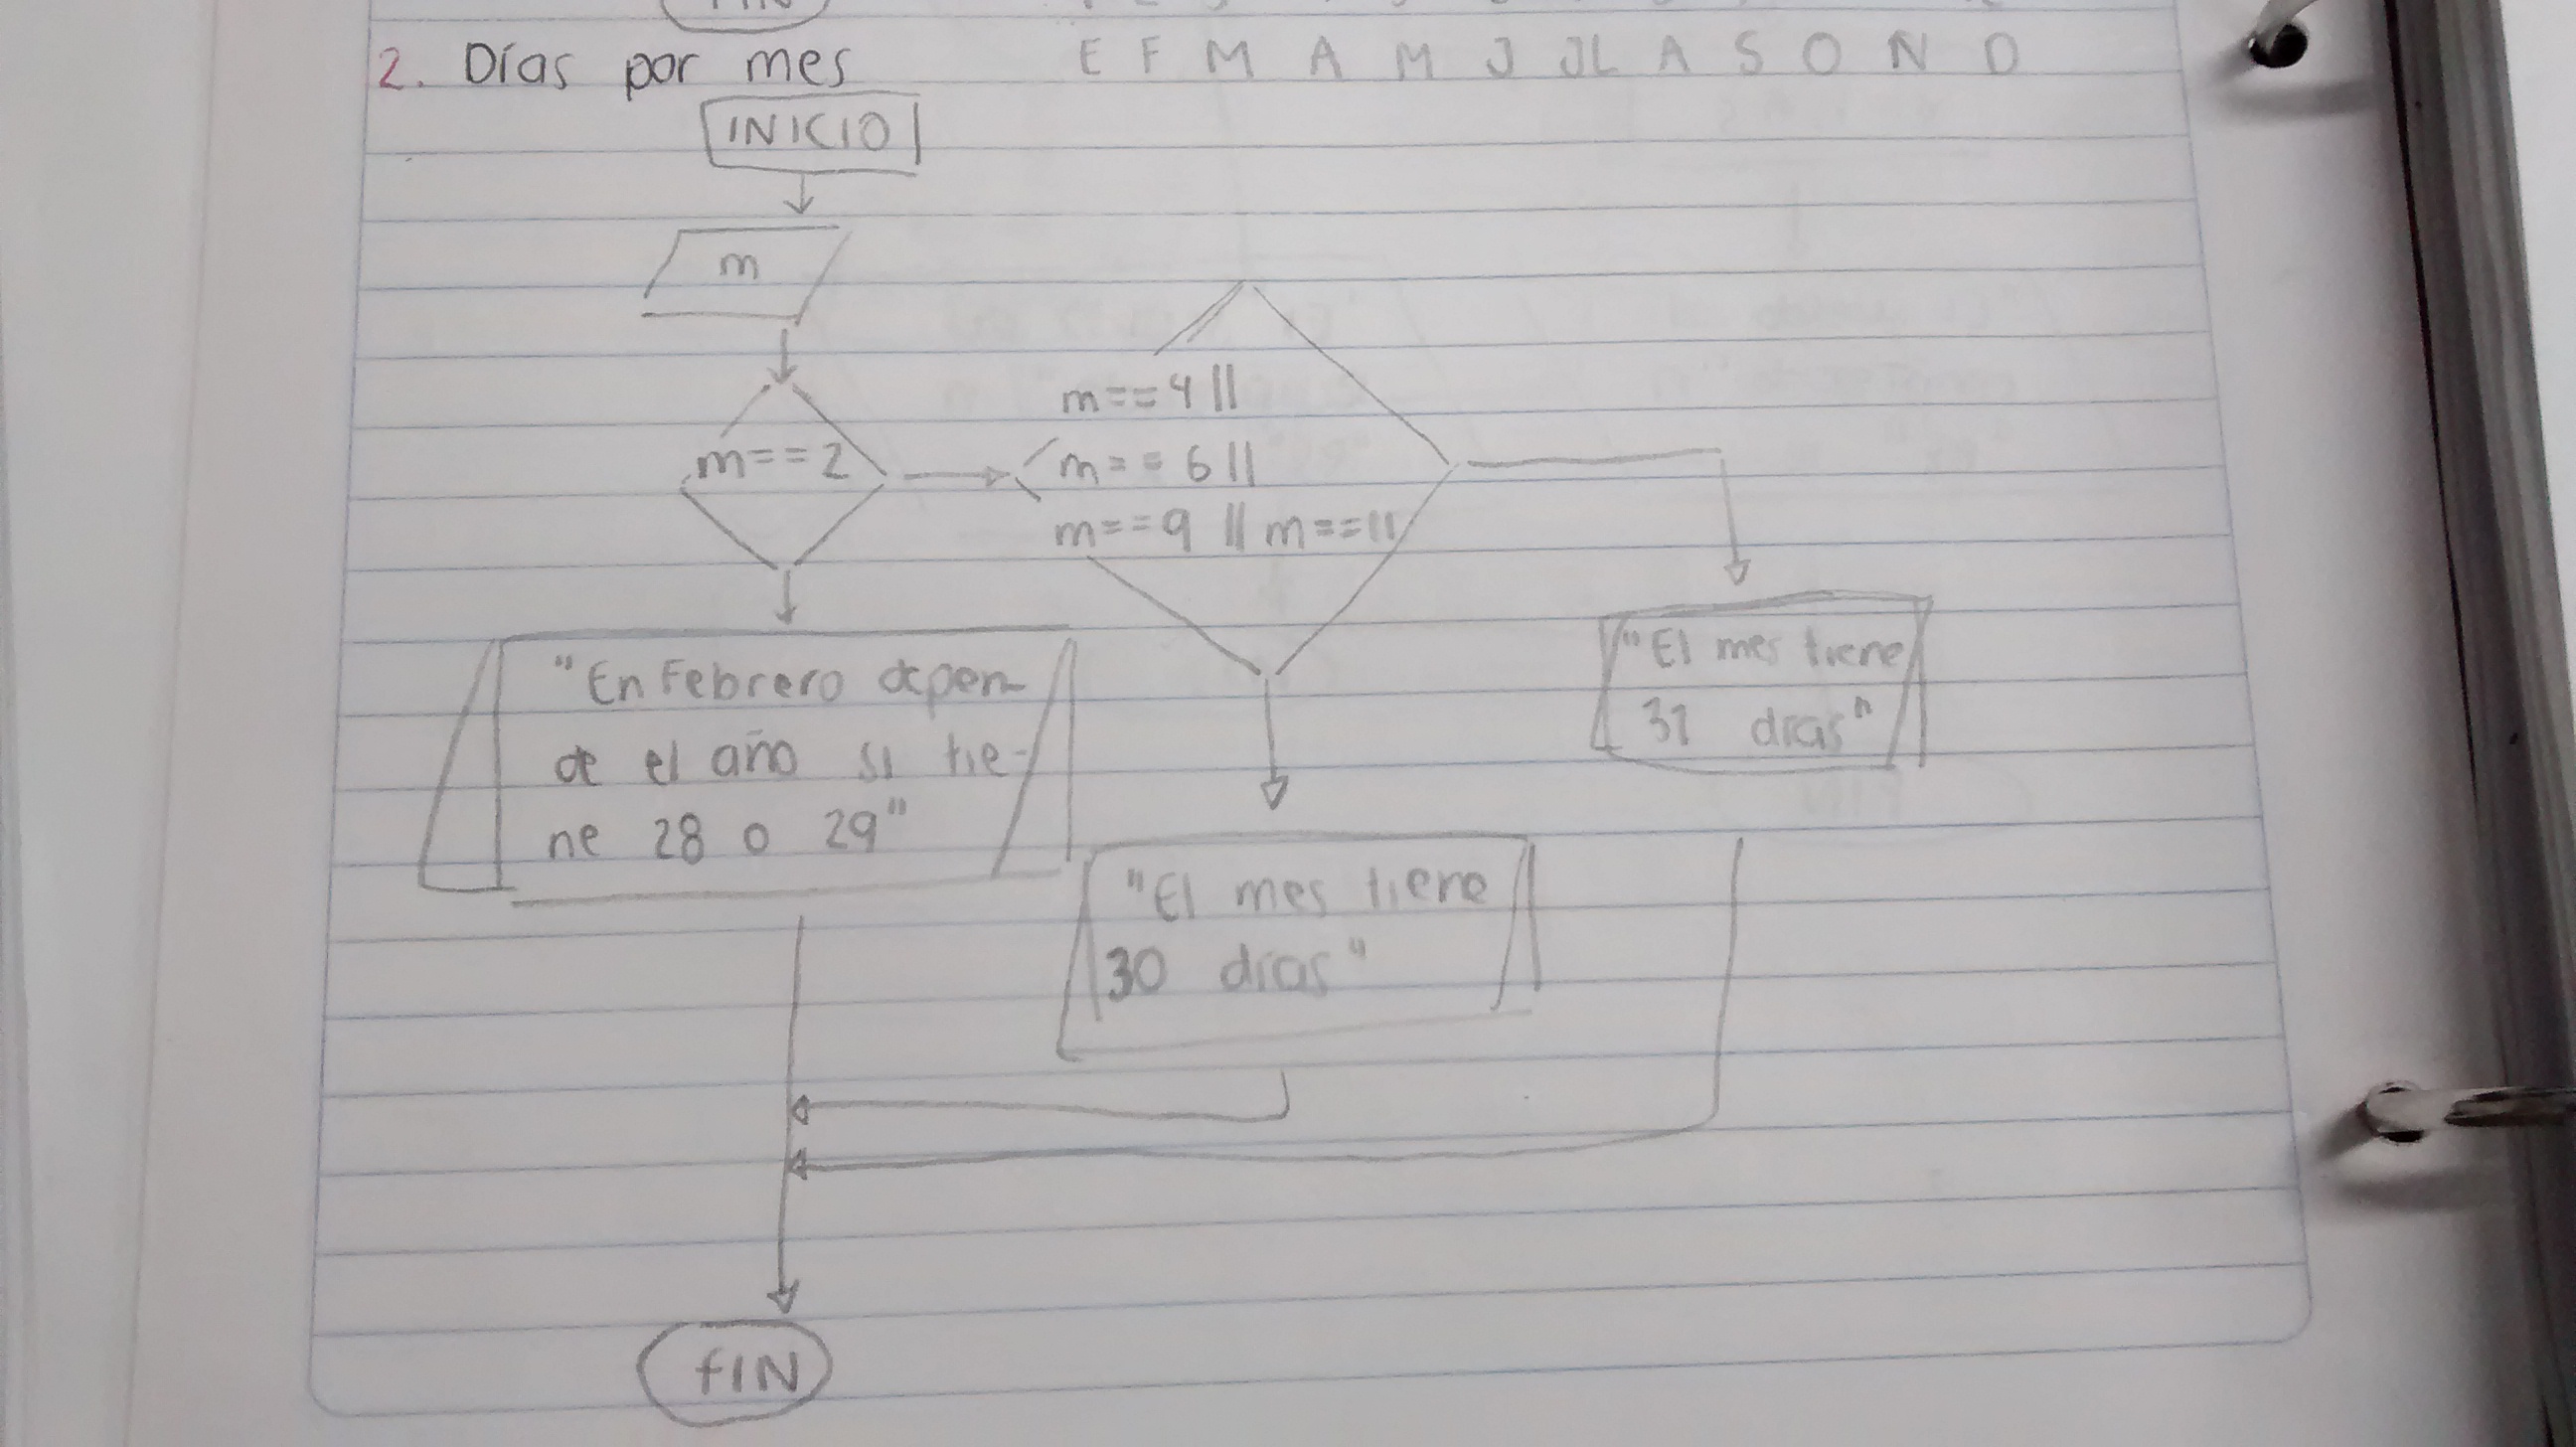 2. Días por mes
E F M A M J JL A S O N D
INICIO
m
m==2
m==4 ||
m==6 ||
m==9 || m==11
"En Febrero depen-
de el año si tie-
ne 28 o 29"
"El mes tiene
31 días"
"El mes tiene
30 días"
fIN